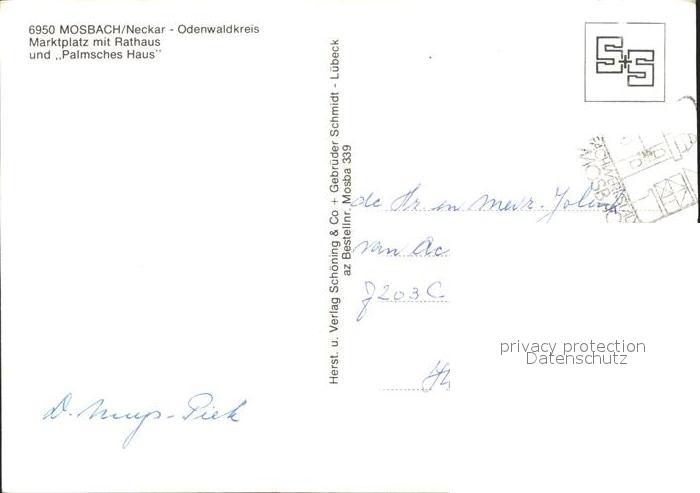 6950 MOSBACH/Neckar - Odenwaldkreis
Marktplatz mit Rathaus
und ,,Palmsches Haus"
S+S
Herst. u. Verlag Schöning & Co + Gebrüder Schmidt - Lübeck
az Bestellnr. Mosba 339
MOSBAC
de Hr. en mevr.
van Ac
J203C
privacy protection
Datenschutz
D. - Piek